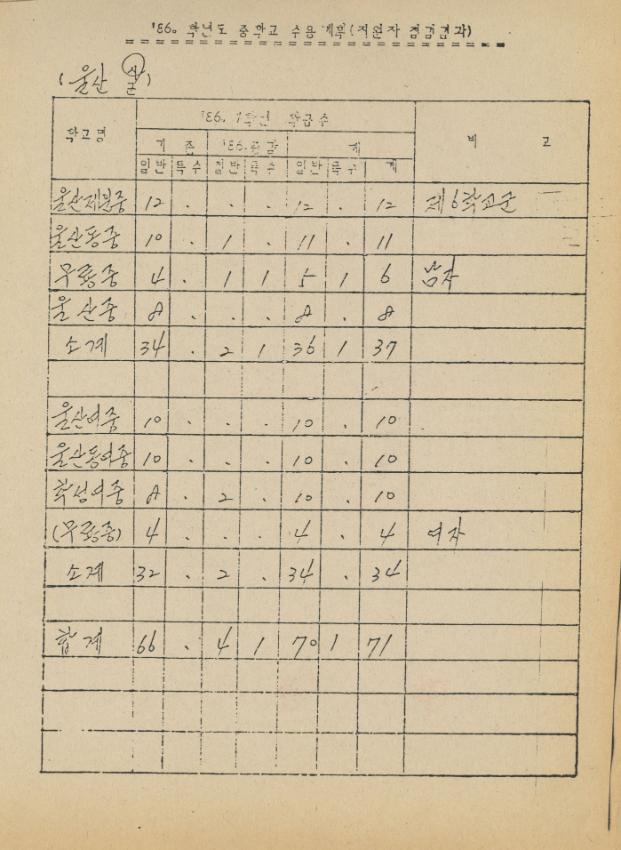 '86. 학년도 중학교 수용계획(지원자 점검결과)
(울산 시)
학교명 '86. 1학년 학급수 비 고
기 존 '86. 증감 계
일반 특수 일반 특수 일반 특수 계
울산제일중 12 . . . 12 . 12 제6학교군
울산동중 10 . 1 . 11 . 11
무룡중 4 . 1 1 5 1 6 남자
울산중 8 . . . 8 . 8
소계 34 . 2 1 36 1 37
울산여중 10 . . . 10 . 10
울산동여중 10 . . . 10 . 10
학성여중 8 . 2 . 10 . 10
(무룡중) 4 . . . 4 . 4 여자
소계 32 . 2 . 34 . 34
합계 66 . 4 1 70 1 71